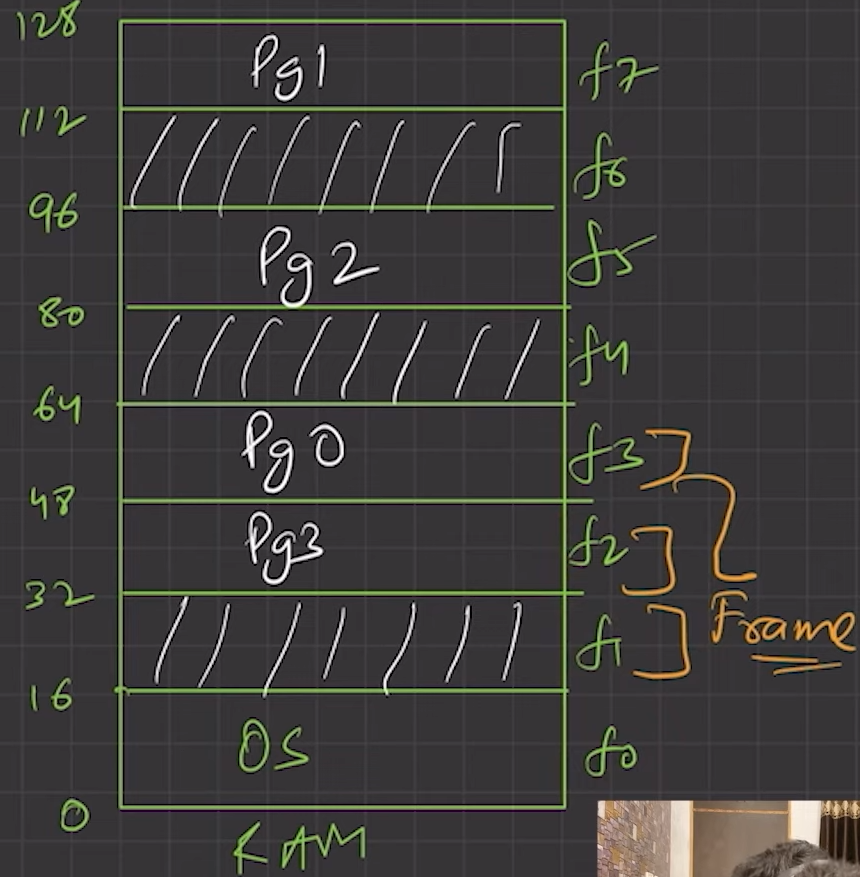 128
Pg1 f7
112
f6
96
Pg 2 f5
80
f4
64
Pg 0 f3
48
Pg3 f2
32
Frame
f1
16
OS f0
0
RAM